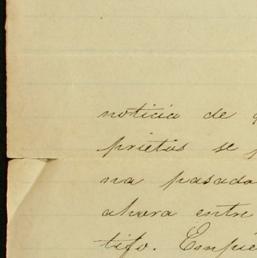 noticia de
prietas se
na pasado
ahora entre
tifo. Empie